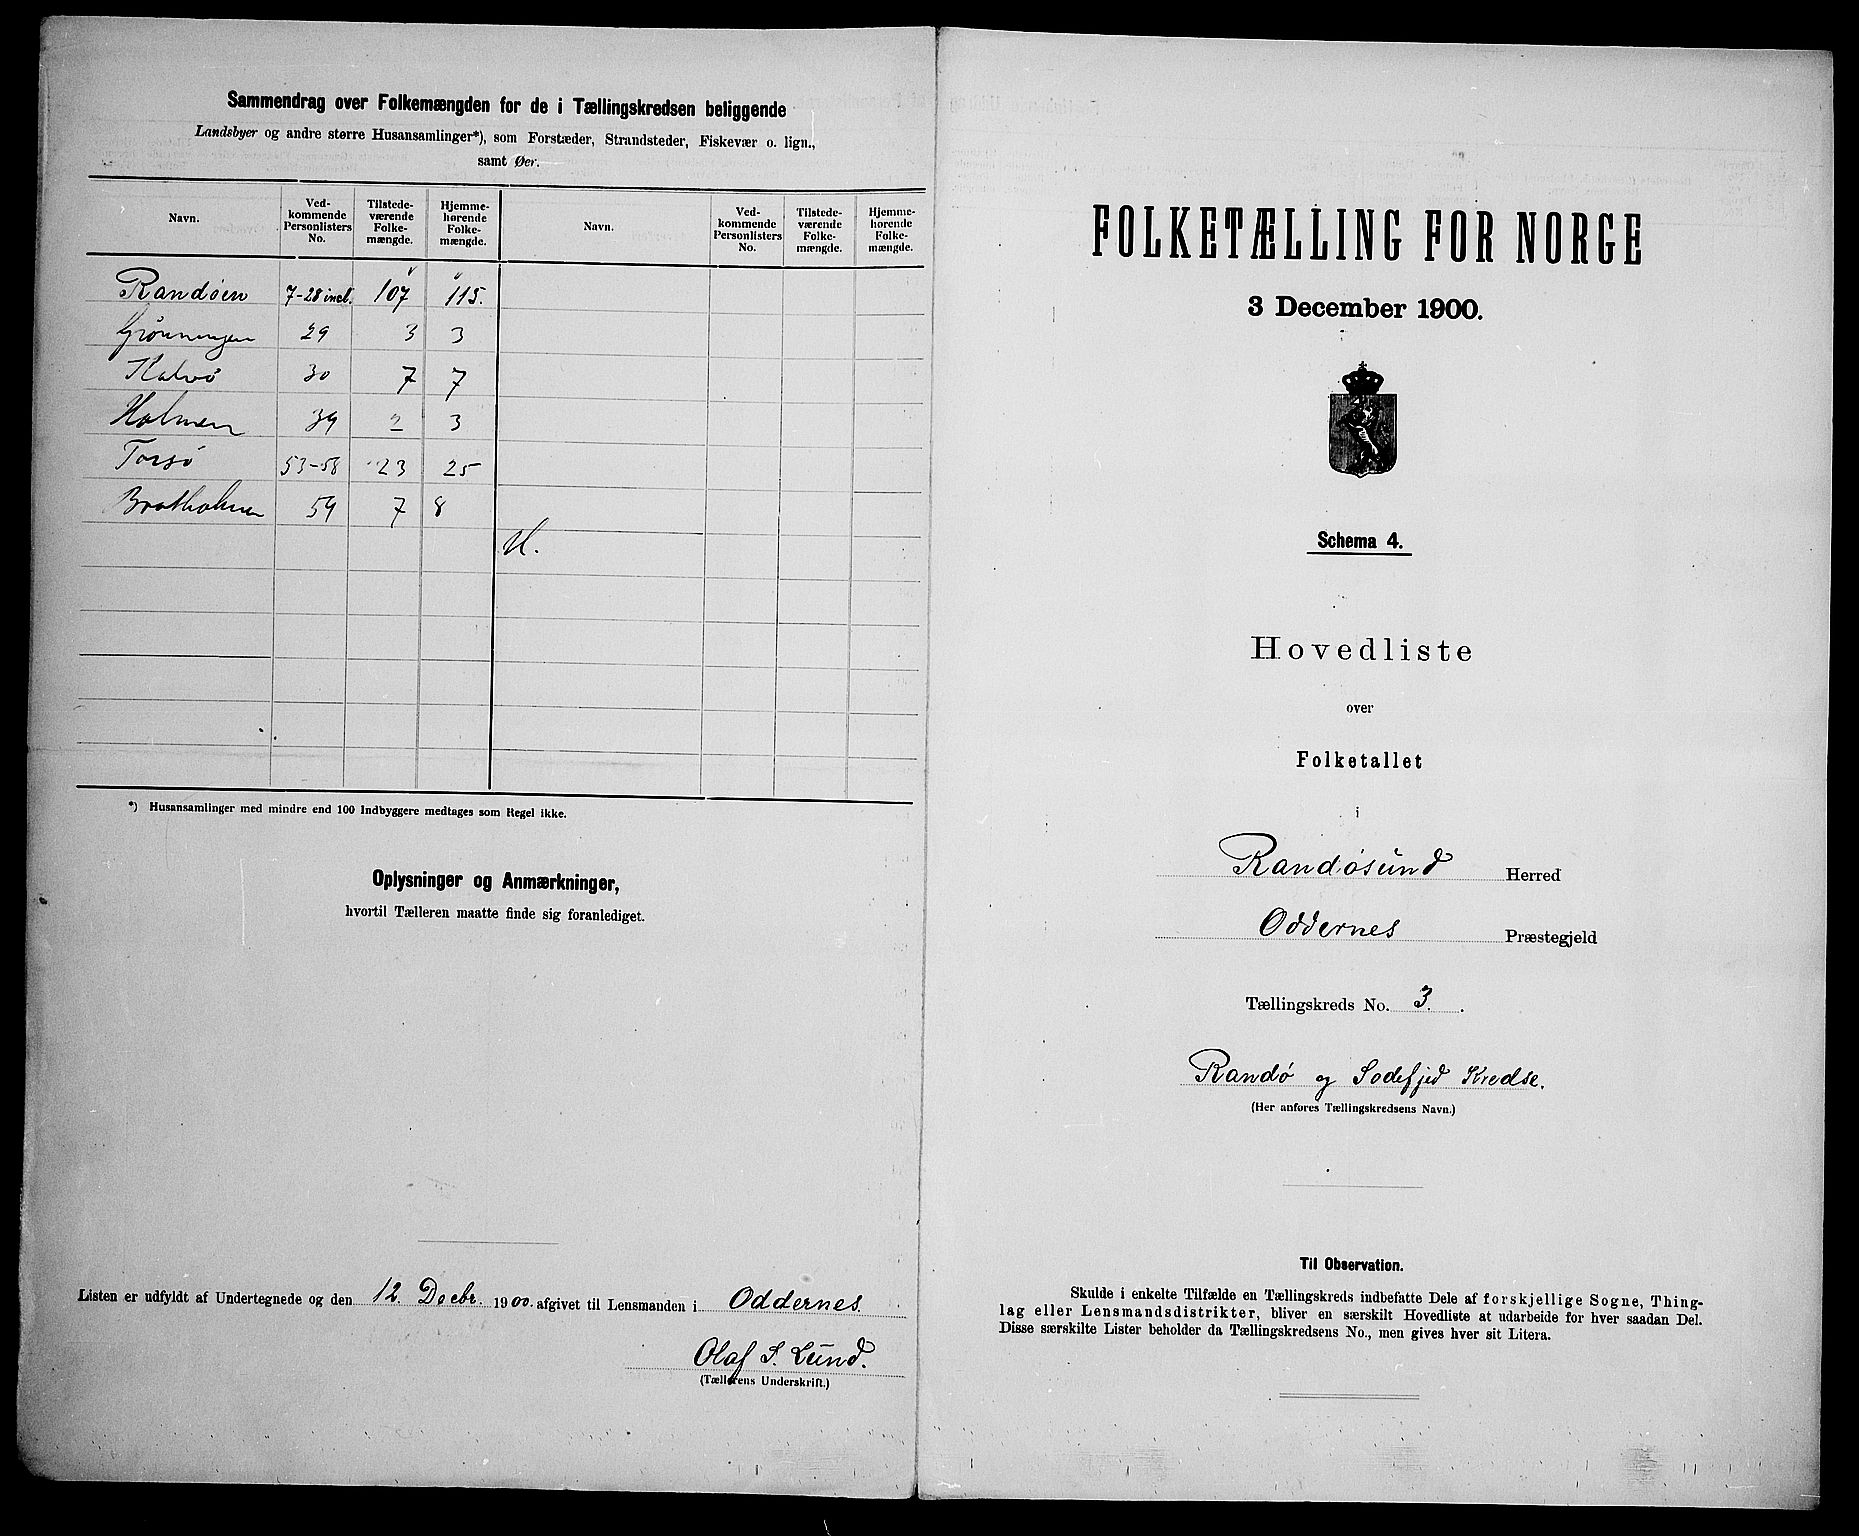 Sammendrag over Folkemængden for de i Tællingskredsen beliggende
Landsbyer og andre større Husansamlinger*), som Forstæder, Strandsteder, Fiskevær o. lign.,
samt Øer.
Navn. Ved-kommende Personlisters No. Tilstede-værende Folke-mængde. Hjemme-hørende Folke-mængde. Navn. Ved-kommende Personlisters No. Tilstede-værende Folke-mængde. Hjemme-hørende Folke-mængde.
Randøen 7-28 incl. 107 115.
Grønningen 29 3 3
Kalvø 30 7 7
Holmen 39 2 3
Torsø 53-58 23 25
Bratholmen 59 7 8
*) Husansamlinger med mindre end 100 Indbyggere medtages som Regel ikke.
Oplysninger og Anmærkninger,
hvortil Tælleren maatte finde sig foranlediget.
Listen er udfyldt af Undertegnede og den 12. Decbr. 1900. afgivet til Lensmanden i Oddernes
Olaf S. Lund.
(Tællerens Underskrift.)
FOLKETÆLLING FOR NORGE
3 December 1900.
Schema 4.
Hovedliste
over
Folketallet
i
Randøsund Herred
Oddernes Præstegjeld
Tællingskreds No. 3.
Randø og Sodefjed Kredse.
(Her anføres Tællingskredsens Navn.)
Til Observation.
Skulde i enkelte Tilfælde en Tællingskreds indbefatte Dele af forskjellige Sogne, Thing-
lag eller Lensmandsdistrikter, bliver en særskilt Hovedliste at udarbeide for hver saadan Del.
Disse særskilte Lister beholder da Tællingskredsens No., men gives hver sit Litera.